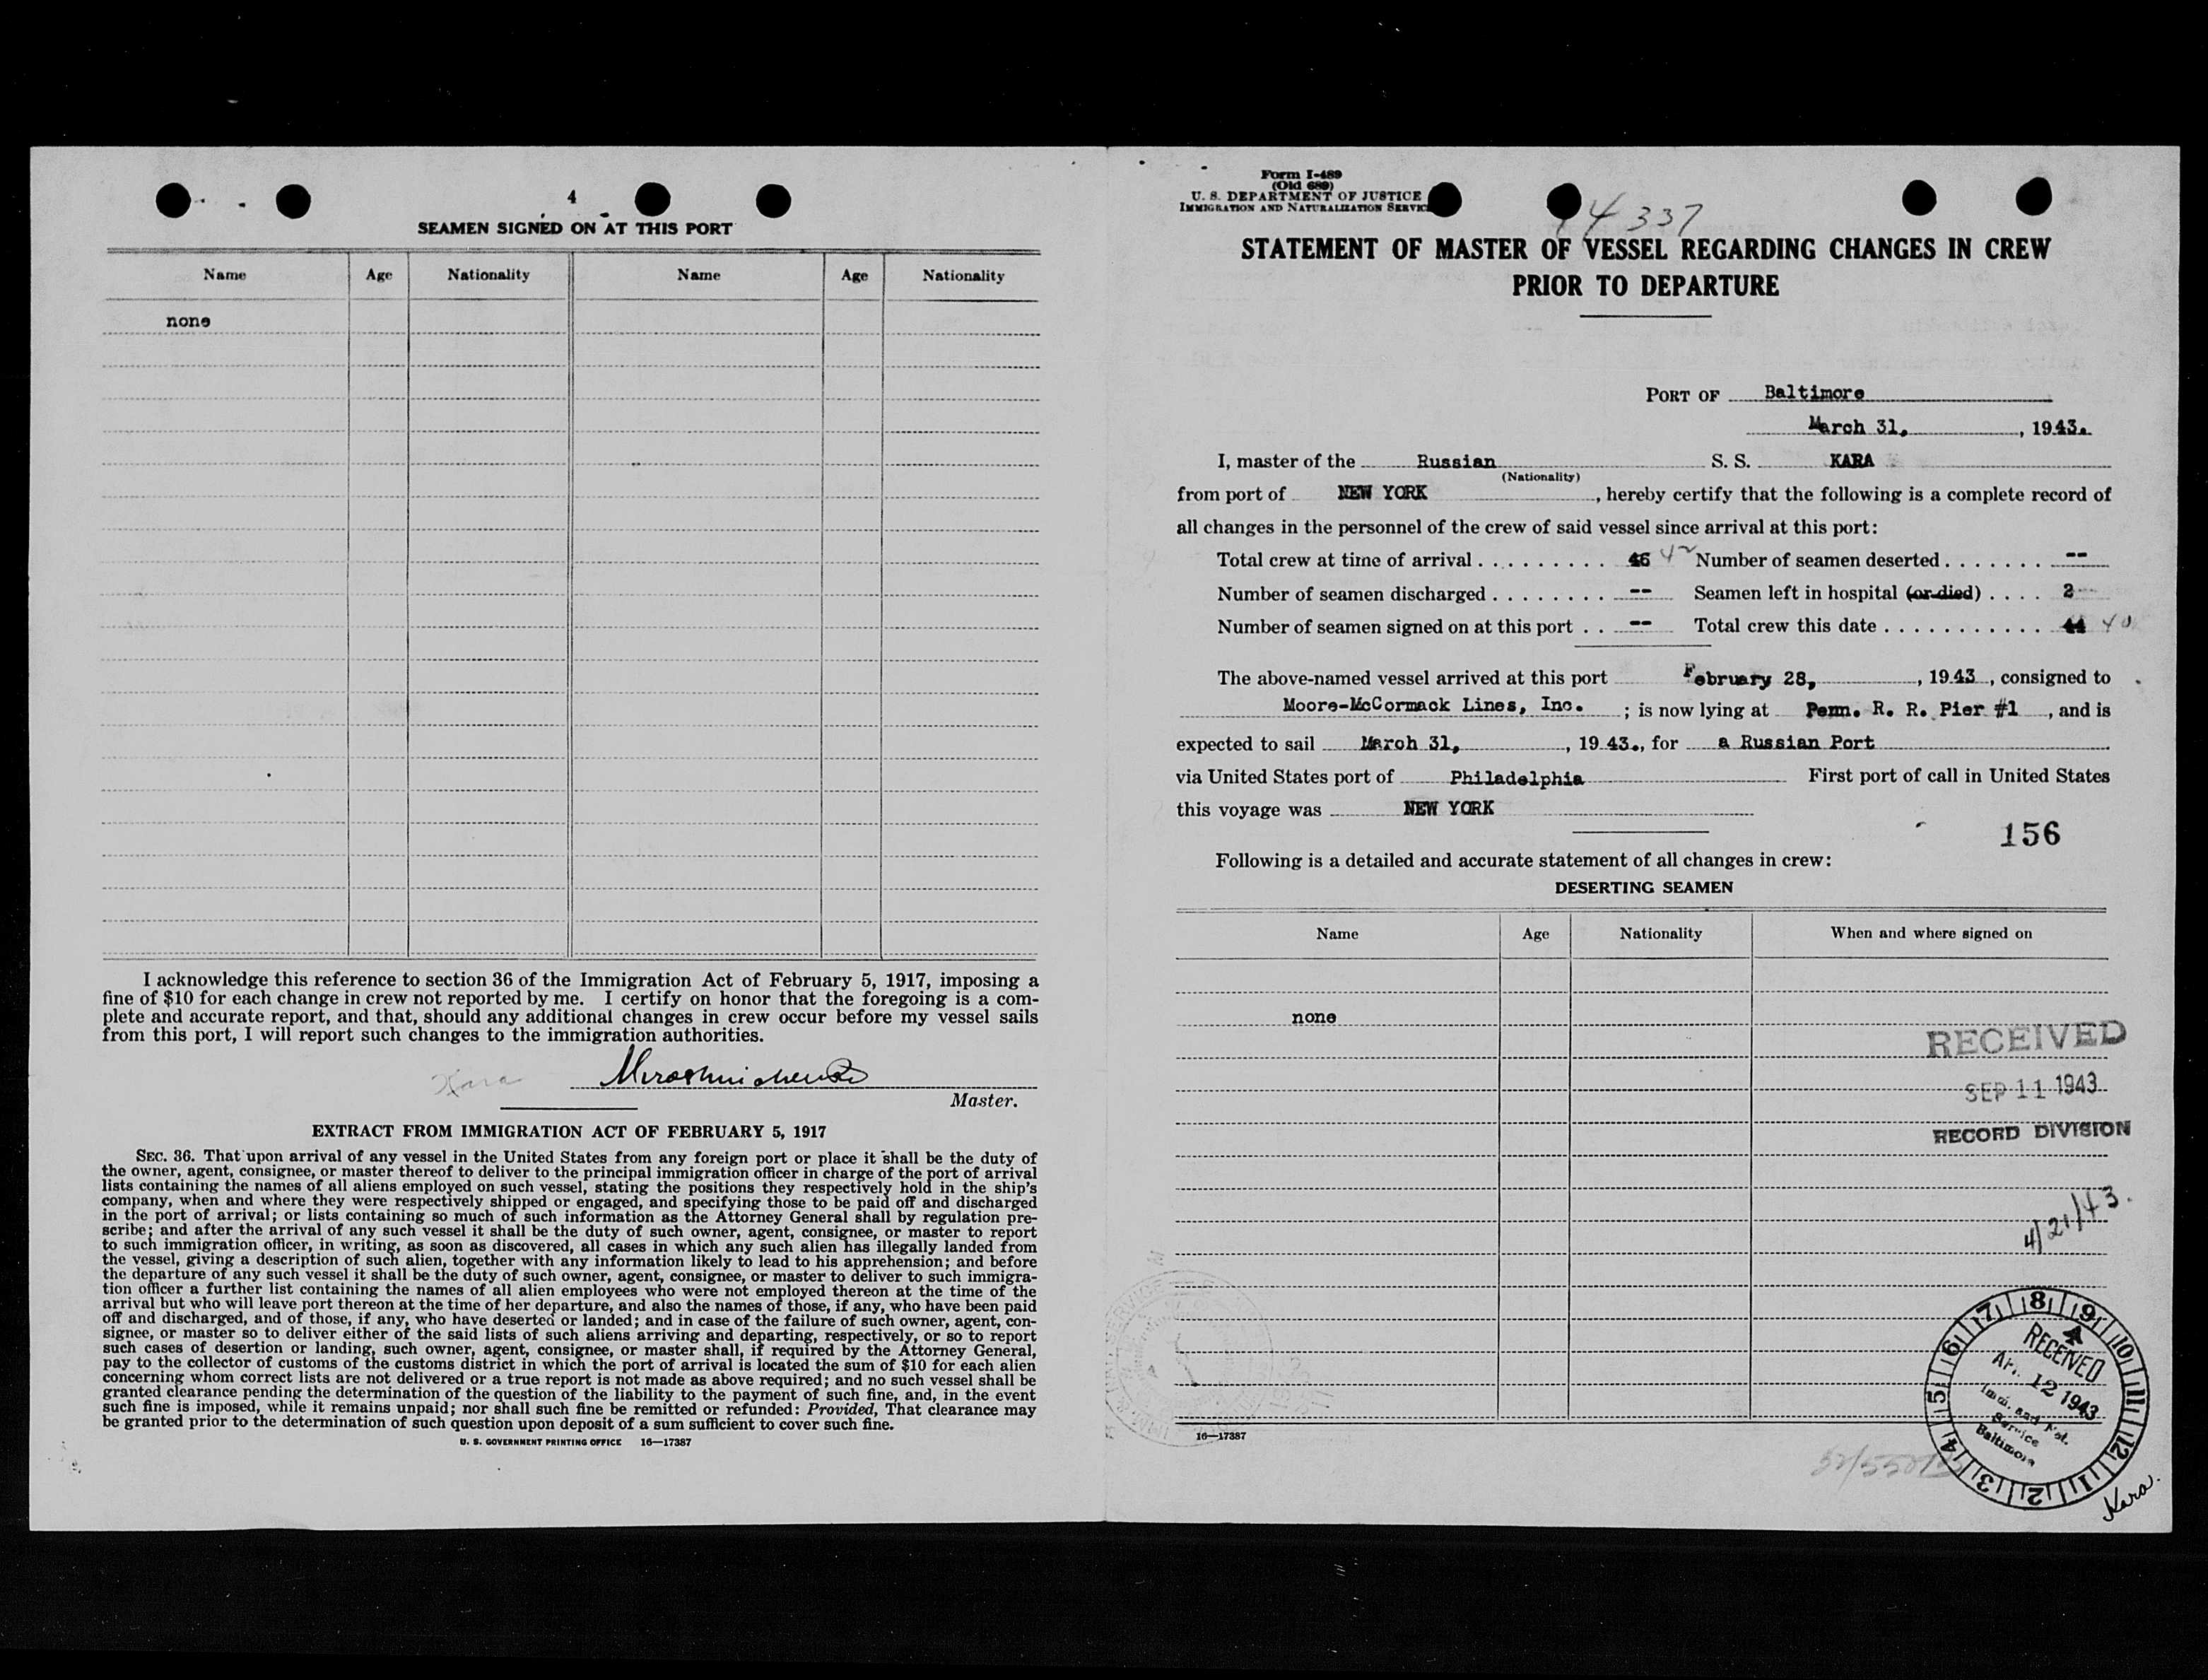 4
SEAMEN SIGNED ON AT THIS PORT
Name Age Nationality Name Age Nationality
none
I acknowledge this reference to section 36 of the Immigration Act of February 5, 1917, imposing a
fine of $10 for each change in crew not reported by me. I certify on honor that the foregoing is a com-
plete and accurate report, and that, should any additional changes in crew occur before my vessel sails
from this port, I will report such changes to the immigration authorities.
Kara
Master.
EXTRACT FROM IMMIGRATION ACT OF FEBRUARY 5, 1917
SEC. 36. That upon arrival of any vessel in the United States from any foreign port or place it shall be the duty of
the owner, agent, consignee, or master thereof to deliver to the principal immigration officer in charge of the port of arrival
lists containing the names of all aliens employed on such vessel, stating the positions they respectively hold in the ship's
company, when and where they were respectively shipped or engaged, and specifying those to be paid off and discharged
in the port of arrival; or lists containing so much of such information as the Attorney General shall by regulation pre-
scribe; and after the arrival of any such vessel it shall be the duty of such owner, agent, consignee, or master to report
to such immigration officer, in writing, as soon as discovered, all cases in which any such alien has illegally landed from
the vessel, giving a description of such alien, together with any information likely to lead to his apprehension; and before
the departure of any such vessel it shall be the duty of such owner, agent, consignee, or master to deliver to such immigra-
tion officer a further list containing the names of all alien employees who were not employed thereon at the time of the
arrival but who will leave port thereon at the time of her departure, and also the names of those, if any, who have been paid
off and discharged, and of those, if any, who have deserted or landed; and in case of the failure of such owner, agent, con-
signee, or master so to deliver either of the said lists of such aliens arriving and departing, respectively, or so to report
such cases of desertion or landing, such owner, agent, consignee, or master shall, if required by the Attorney General,
pay to the collector of customs of the customs district in which the port of arrival is located the sum of $10 for each alien
concerning whom correct lists are not delivered or a true report is not made as above required; and no such vessel shall be
granted clearance pending the determination of the question of the liability to the payment of such fine, and, in the event
such fine is imposed, while it remains unpaid; nor shall such fine be remitted or refunded: Provided, That clearance may
be granted prior to the determination of such question upon deposit of a sum sufficient to cover such fine.
U. S. GOVERNMENT PRINTING OFFICE 16—17387
Form I-489
(Old 689)
U. S. DEPARTMENT OF JUSTICE
IMMIGRATION AND NATURALIZATION SERVICE
4337
STATEMENT OF MASTER OF VESSEL REGARDING CHANGES IN CREW
PRIOR TO DEPARTURE
PORT OF Baltimore
March 31, , 1943.
I, master of the Russian S. S. KARA
(Nationality)
from port of NEW YORK , hereby certify that the following is a complete record of
all changes in the personnel of the crew of said vessel since arrival at this port:
Total crew at time of arrival . . . . . . . . . . 46 42 Number of seamen deserted . . . . . . . --
Number of seamen discharged . . . . . . . . -- Seamen left in hospital (or died) . . . . 2
Number of seamen signed on at this port . . -- Total crew this date . . . . . . . . . . . . 44 40
The above-named vessel arrived at this port February 28, , 1943 , consigned to
Moore-McCormack Lines, Inc. ; is now lying at Penn. R. R. Pier #1 , and is
expected to sail March 31, , 1943., for a Russian Port
via United States port of Philadelphia First port of call in United States
this voyage was NEW YORK
156
Following is a detailed and accurate statement of all changes in crew:
DESERTING SEAMEN
Name Age Nationality When and where signed on
none
RECEIVED
SEP 11 1943
RECORD DIVISION
4/21/43.
7 8 9 10 11 12 1 2 3 4 5 6
RECEIVED
Apr. 12 1943
Immi. and Nat.
Service
Baltimore
16—17387
Kara.